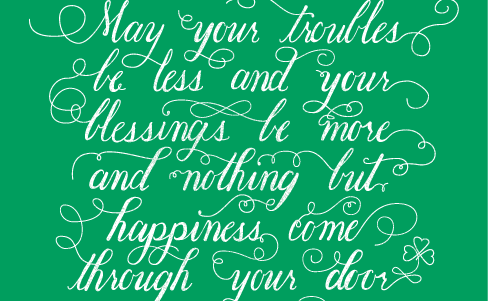 May your troubles
be less and your
blessings be more
and nothing but
happiness come
through your door